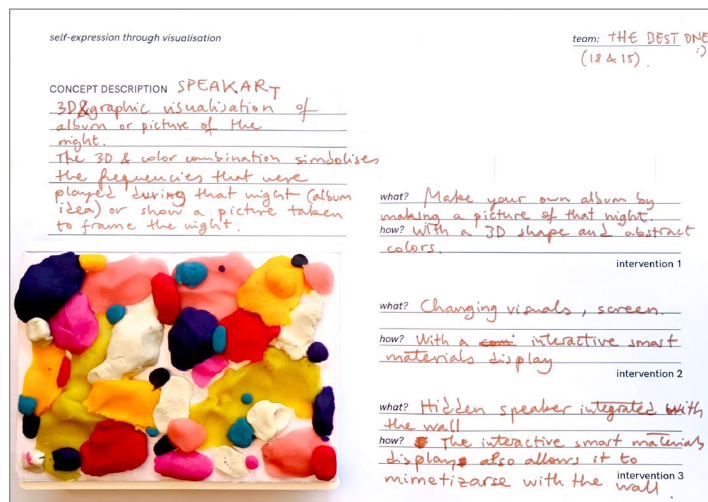 self-expression through visualisation
team: THE BEST ONE :)
(18 & 15).
CONCEPT DESCRIPTION SPEAKART
3D & graphic visualisation of
album or picture of the
night.
The 3D & color combination simbolises
the frequencies that were
played during that night (album
idea) or show a picture taken
to frame the night.
what? Make your own album by
making a picture of that night.
how? With a 3D shape and abstract
colors.
intervention 1
what? Changing visuals, screen.
how? With a interactive smart
materials display
intervention 2
what? Hidden speaker integrated with
the wall
how? The interactive smart materials
display also allows it to
mimetizarse with the wall
intervention 3